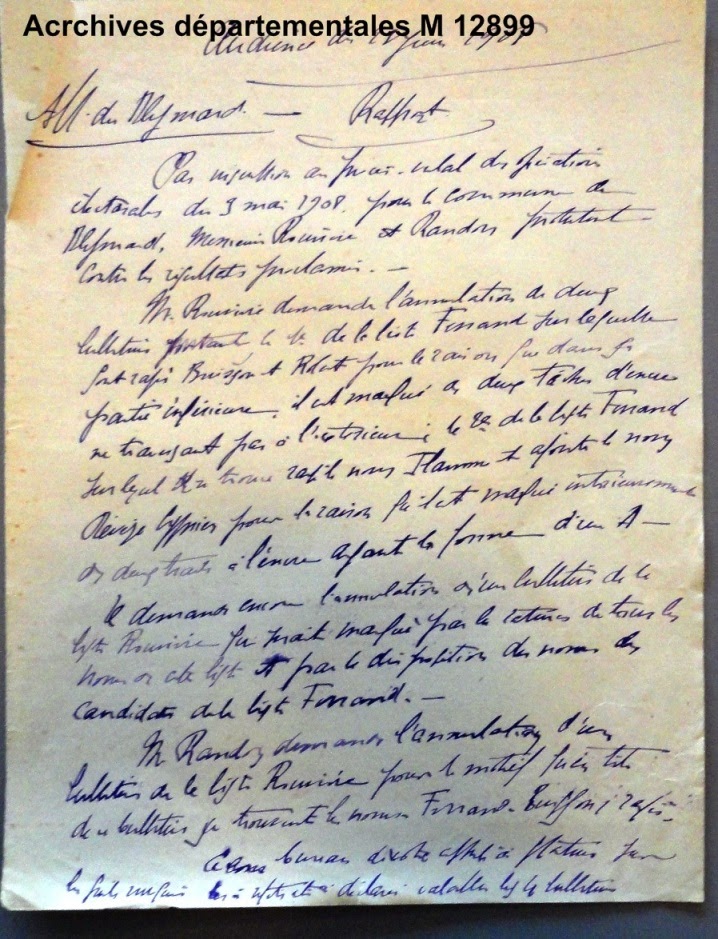 Acrchives départementales M 12899
Audience du juin 1908
Aff. du Bleymard — Rapport
Par insertion au procès-verbal des opérations
électorales du 3 mai 1908, pour la commune du
Bleymard, Messieurs Rouvière et Randon protestent
contre les résultats proclamés. —
M. Rouvière demande l'annulation de deux
bulletins portant le 1er de la liste Ferrand sur laquelle
sont rayés Buisson et pour la raison que dans sa
partie inférieure, il est maqué de deux tâches d'encre
ne traversant pas à l'extérieur ; le 2e de la liste Ferrand
sur lequel se trouve rayé le nom et ajouté le nom
pour la raison qu'il est maqué intérieurement
de deux traits à l'encre ayant la forme d'un A —
Il demande encore l'annulation d'un bulletin de la
liste Rouvière qui serait marqué par la ratures de tous les
noms de cette liste et par la disposition des noms des
candidats de la liste Ferrand. —
M. Randon demande l'annulation d'un
bulletin de la liste Rouvière pour le motif qu'en tête
de ce bulletin se trouvent les noms Ferrand - Buisson, rayés.
bureau appelé à statuer sur
les à déclarer valables les bulletins